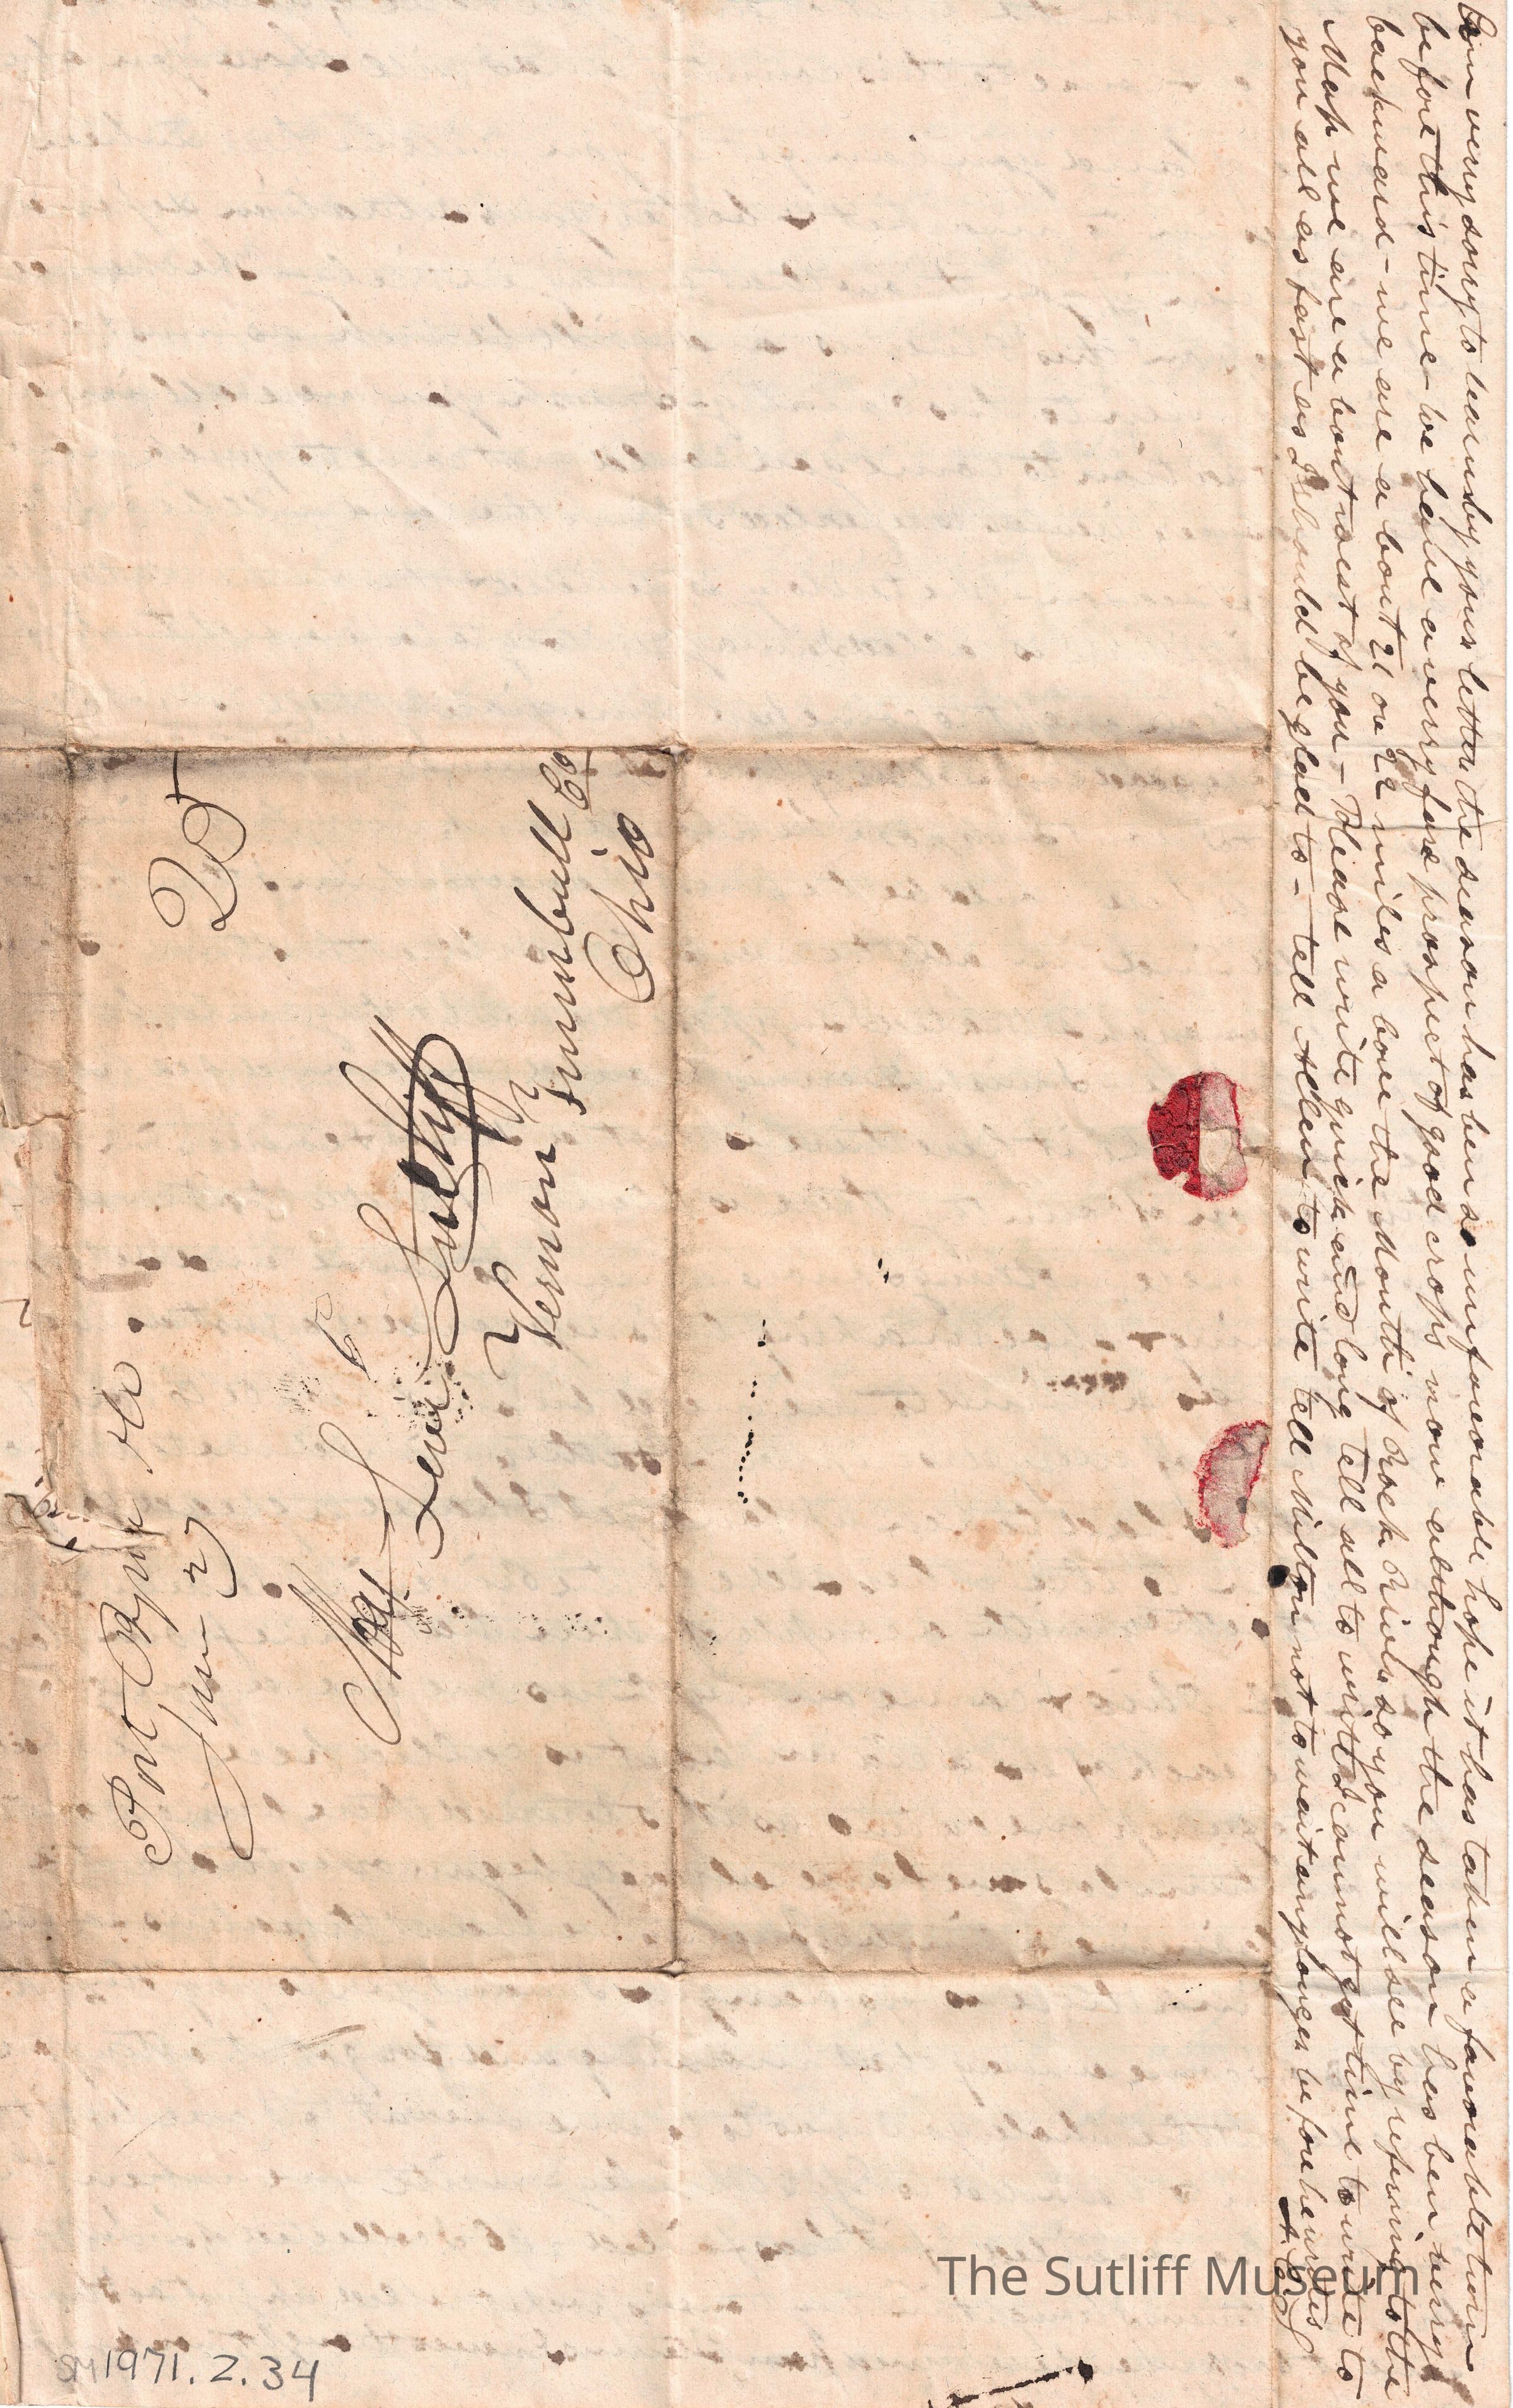 am very sorry to learn by your letter the season has ben so unfavorable hope it has taken a favorable turn
before this time - we have a verry fare prospect of good crops now although the season has ben very
backward - we are a bout 21 or 22 miles a bove the Mouth of Rock River so you will see by refering to the
Map we are a bout west of you - Please write quick and long tell all to write I cannot get time to write to
you all as fast as I should be glad to - tell to write tell Milton not to wait any longer before he writes
25
Mr. Levi Sutliff
Vernon Trumbull Co
Ohio
6
The Sutliff Museum
SM1971.2.34